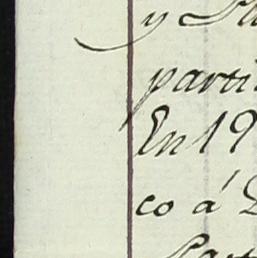 y
parti
En 19
co á